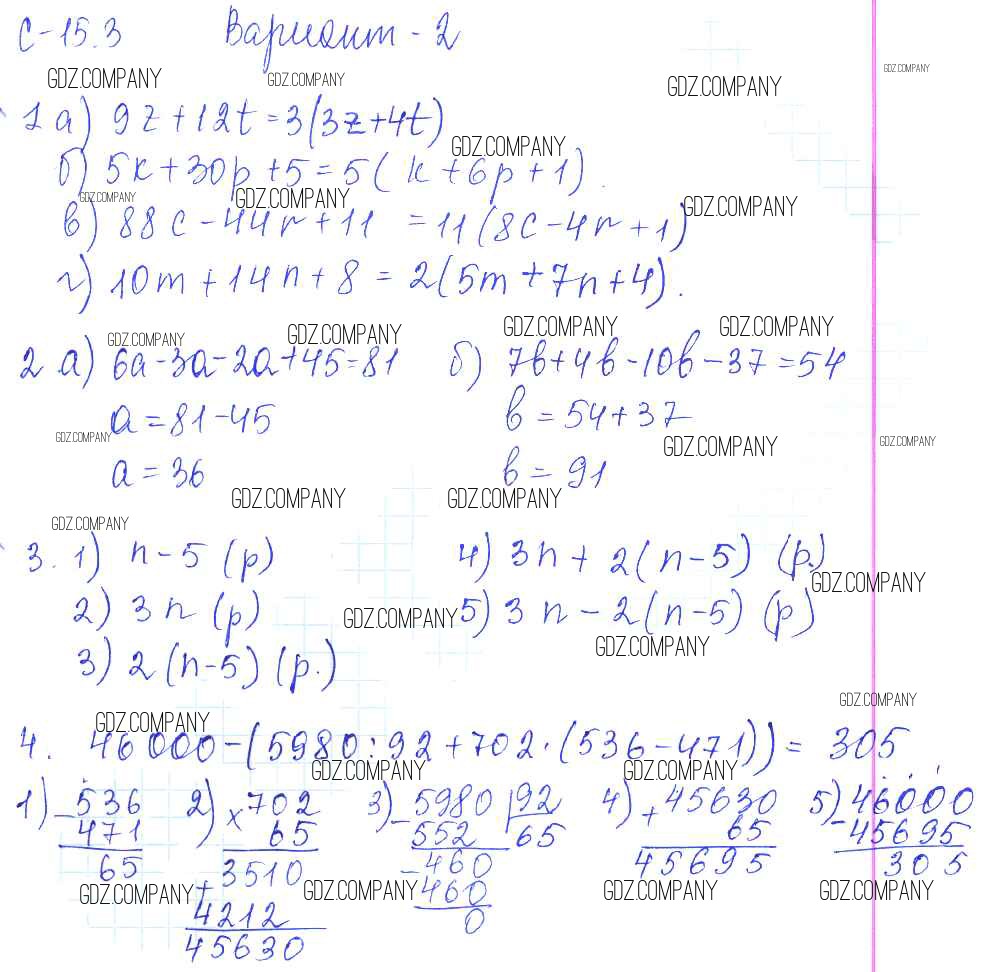 С-15.3 Вариант - 2
GDZ.COMPANY GDZ.COMPANY GDZ.COMPANY GDZ.COMPANY
1 а) 9z + 12t = 3(3z + 4t)
GDZ.COMPANY
б) 5k + 30p + 5 = 5(k + 6p + 1).
GDZ.COMPANY GDZ.COMPANY GDZ.COMPANY
в) 88c - 44r + 11 = 11(8c - 4r + 1)
г) 10m + 14n + 8 = 2(5m + 7n + 4).
GDZ.COMPANY GDZ.COMPANY GDZ.COMPANY GDZ.COMPANY
2 а) 6a - 3a - 2a + 45 = 81 б) 7b + 4b - 10b - 37 = 54
a = 81 - 45 b = 54 + 37
GDZ.COMPANY GDZ.COMPANY GDZ.COMPANY
a = 36 b = 91
GDZ.COMPANY GDZ.COMPANY
GDZ.COMPANY
3. 1) n - 5 (р) 4) 3n + 2(n - 5) (р.)
GDZ.COMPANY
2) 3n (р) 5) 3n - 2(n - 5) (р)
GDZ.COMPANY GDZ.COMPANY
3) 2(n - 5) (р.)
GDZ.COMPANY
GDZ.COMPANY
4. 46000 - (5980 : 92 + 702 · (536 - 471)) = 305
GDZ.COMPANY GDZ.COMPANY
1) - 536 2) × 702 3) - 5980 | 92 4) + 45630 5) - 46000
471 65 552 65 65 45695
65 3510 - 460 45695 305
GDZ.COMPANY + GDZ.COMPANY 460 GDZ.COMPANY GDZ.COMPANY
4212 0
45630